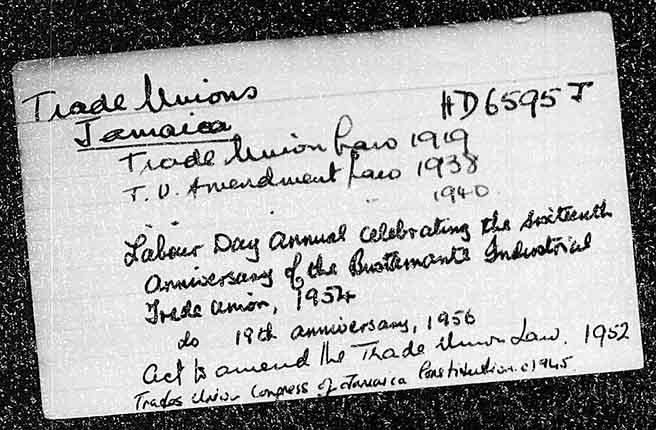 Trade Unions
HD6595 J
Jamaica
Trade Union Law 1919
T. U. Amendment Law 1938
" 1940
Labour Day Annual celebrating the sixteenth
Anniversary of the Bustamante Industrial
Trade Union, 1954
do 18th anniversary, 1956
Act to amend the Trade Union Law. 1952
Trades Union Congress of Jamaica Constitution. c1945